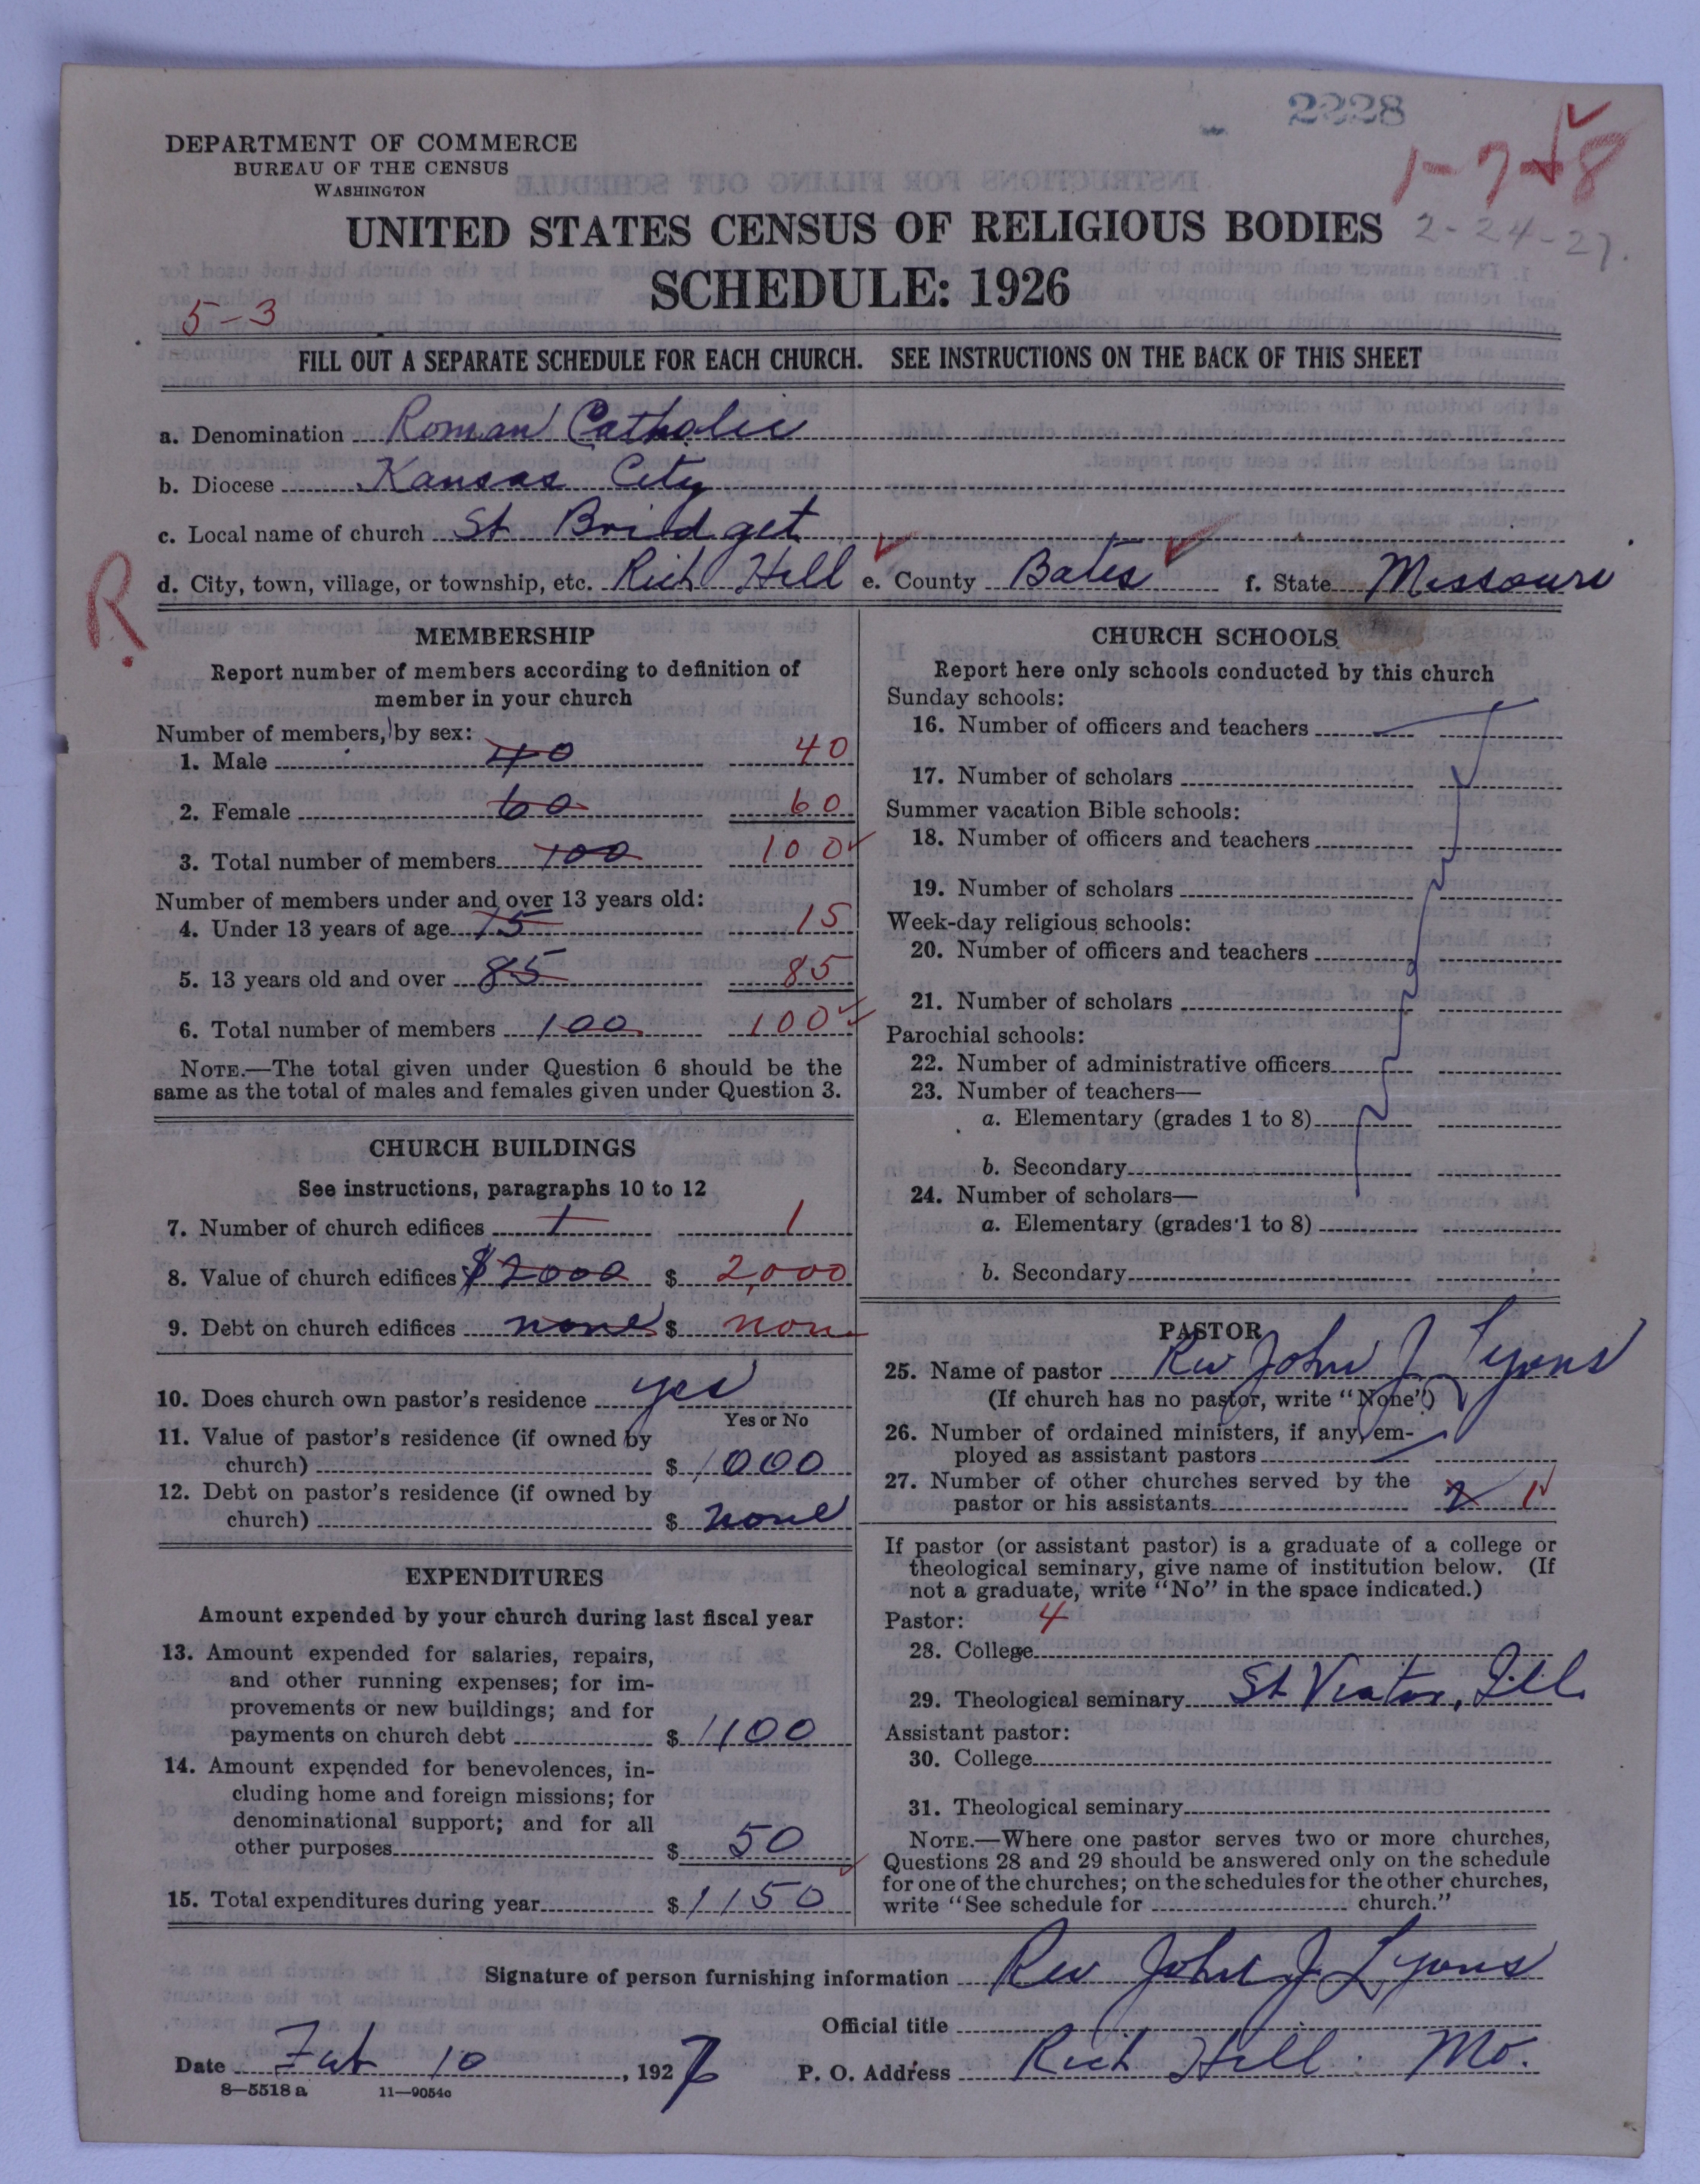 2228
1-7-18
DEPARTMENT OF COMMERCE
BUREAU OF THE CENSUS
WASHINGTON
UNITED STATES CENSUS OF RELIGIOUS BODIES
2-24-27.
SCHEDULE: 1926
5-3
FILL OUT A SEPARATE SCHEDULE FOR EACH CHURCH. SEE INSTRUCTIONS ON THE BACK OF THIS SHEET
a. Denomination Roman Catholic
b. Diocese Kansas City
c. Local name of church St Bridget
d. City, town, village, or township, etc. Rich Hill e. County Bates f. State Missouri
R
MEMBERSHIP
Report number of members according to definition of
member in your church
Number of members, by sex:
1. Male 40 40
2. Female 60 60
3. Total number of members 100 100
Number of members under and over 13 years old:
4. Under 13 years of age 15 15
5. 13 years old and over 85 85
6. Total number of members 100 100
NOTE.—The total given under Question 6 should be the
same as the total of males and females given under Question 3.
CHURCH BUILDINGS
See instructions, paragraphs 10 to 12
7. Number of church edifices 1 1
8. Value of church edifices $2000 $ 2,000
9. Debt on church edifices none $ non
10. Does church own pastor's residence yes
Yes or No
11. Value of pastor's residence (if owned by
church) $ 1000
12. Debt on pastor's residence (if owned by
church) $ none
EXPENDITURES
Amount expended by your church during last fiscal year
13. Amount expended for salaries, repairs,
and other running expenses; for im-
provements or new buildings; and for
payments on church debt $ 1100
14. Amount expended for benevolences, in-
cluding home and foreign missions; for
denominational support; and for all
other purposes $ 50
15. Total expenditures during year $ 1150
CHURCH SCHOOLS
Report here only schools conducted by this church
Sunday schools:
16. Number of officers and teachers
17. Number of scholars
Summer vacation Bible schools:
18. Number of officers and teachers
19. Number of scholars
Week-day religious schools:
20. Number of officers and teachers
21. Number of scholars
Parochial schools:
22. Number of administrative officers
23. Number of teachers—
a. Elementary (grades 1 to 8)
b. Secondary
24. Number of scholars—
a. Elementary (grades 1 to 8)
b. Secondary
PASTOR
25. Name of pastor Rev John J Lyons
(If church has no pastor, write "None")
26. Number of ordained ministers, if any, em-
ployed as assistant pastors
27. Number of other churches served by the
pastor or his assistants 2 1
If pastor (or assistant pastor) is a graduate of a college or
theological seminary, give name of institution below. (If
not a graduate, write "No" in the space indicated.)
Pastor: 4
28. College
29. Theological seminary St Viator, Ill.
Assistant pastor:
30. College
31. Theological seminary
NOTE.—Where one pastor serves two or more churches,
Questions 28 and 29 should be answered only on the schedule
for one of the churches; on the schedules for the other churches,
write "See schedule for church."
Signature of person furnishing information Rev John J Lyons
Official title
Date Feb 10, 1927 P. O. Address Rich Hill. Mo.
8—5518 a 11—9054c